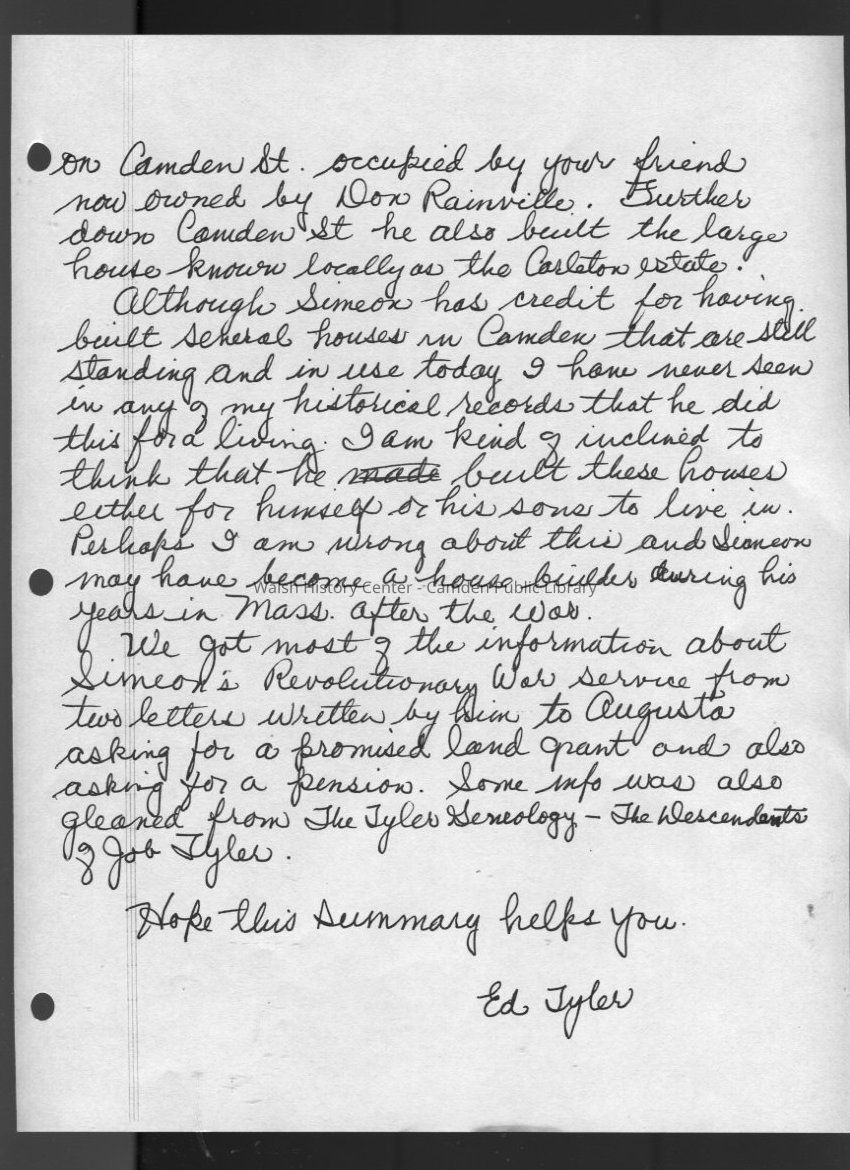 on Camden St. occupied by your friend
now owned by Don Rainville. Further
down Camden St he also built the large
house known locally as the Carleton estate.
Although Simeon has credit for having
built several houses in Camden that are still
standing and in use today I have never seen
in any of my historical records that he did
this for a living. I am kind of inclined to
think that he made built these houses
either for himself or his sons to live in.
Perhaps I am wrong about this and Simeon
may have become a house builder during his
Walsh History Center - Camden Public Library
years in Mass. after the war.
We got most of the information about
Simeon's Revolutionary War service from
two letters written by him to Augusta
asking for a promised land grant and also
asking for a pension. Some info was also
gleaned from The Tyler Geneology - The Descendents
of Job Tyler.
Hope this summary helps you.
Ed Tyler